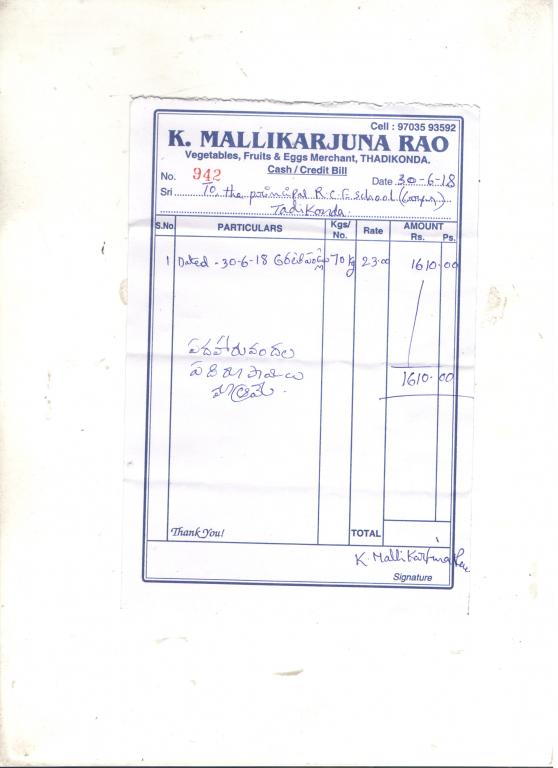 Cell : 97035 93592
K. MALLIKARJUNA RAO
Vegetables, Fruits & Eggs Merchant, THADIKONDA.
Cash / Credit Bill
No. 942 Date 30-6-18
Sri To, the principal R.C.E school
Tadikonda.
S.No PARTICULARS Kgs/ No. Rate AMOUNT Rs. Ps.
1 Dated - 30-6-18 70 kg 23.00 1610.00
పదహారువందల
పది రూపాయలు
మాత్రమే.
1610.00
Thank You! TOTAL
K. Mallikarjuna Rao
Signature